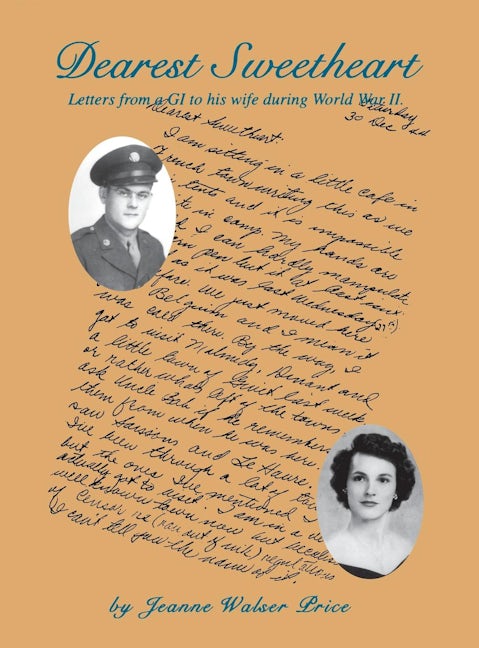 Dearest Sweetheart
Letters from a GI to his wife during World War II.
Saturday
30 Dec 44
Dearest Sweetheart:
I am sitting in a little cafe in
French town writing this as we
tents and it is impossible
in camp. My hands are
I can hardly manipulate
pen but it at least isn't
as it was last Wednesday (27th)
here. We just moved here
Belgium and I mean it
was cold there. By the way, I
got to visit Malmedy, Dinant and
a little town of Givet last week
or rather what's left of the towns
ask Uncle Bob if he remembers
them from when he was here.
saw Soissons and Le Havre.
I've been through a lot of
but the ones I've mentioned I
actually got to visit. I am in a
well known town now but because
of censor regulations
I can't tell you the name of it.
by Jeanne Walser Price